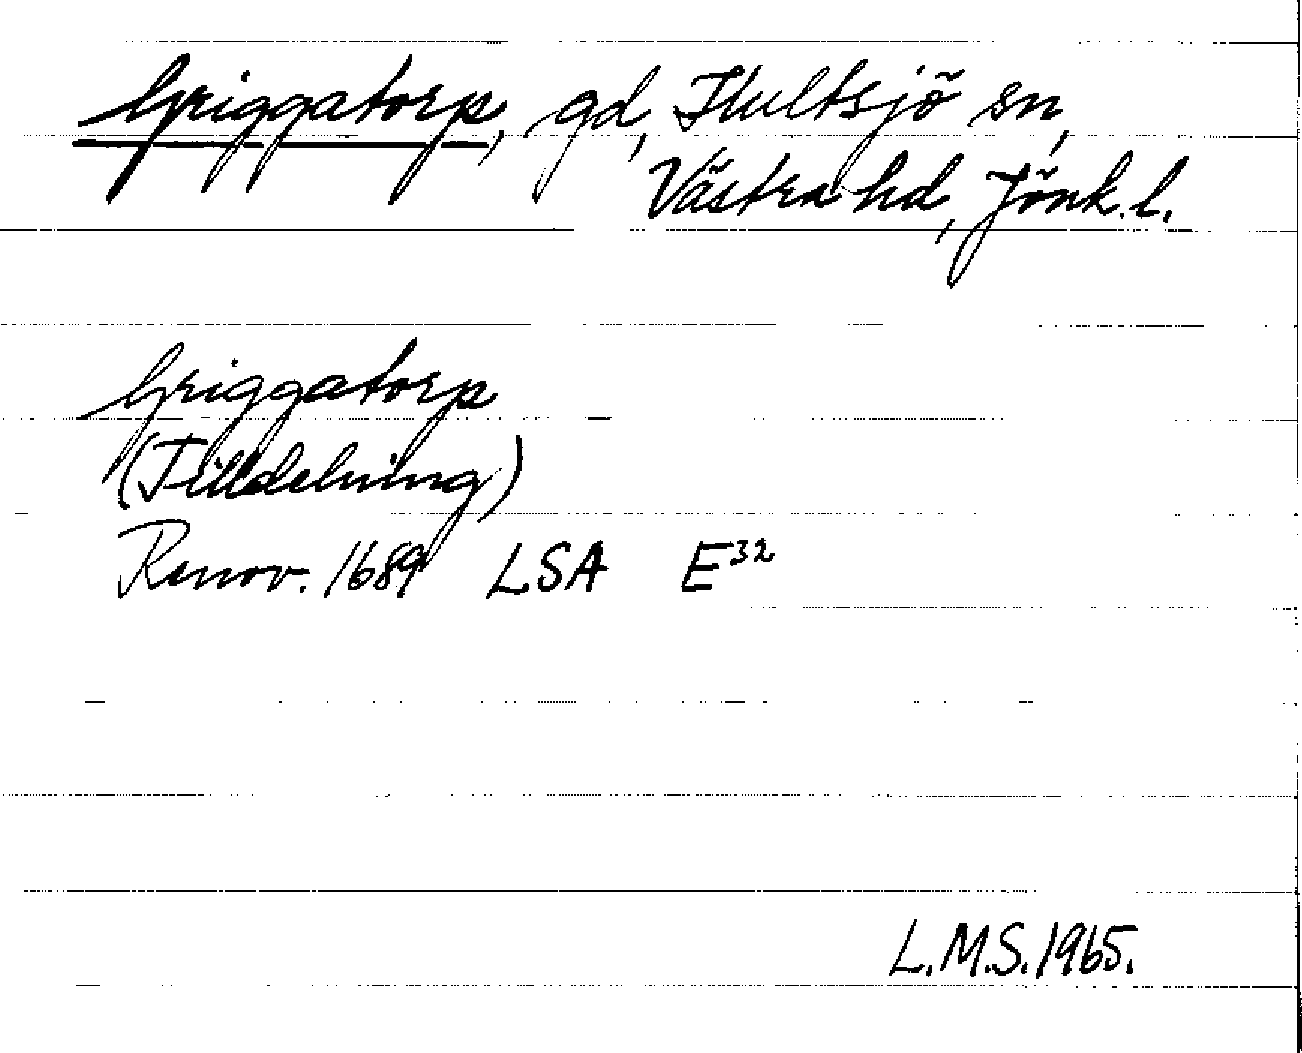 Griggatorp, gd, Hultsjö sn,
Västra hd, Jönk. l.
Griggatorp
(Tilldelning)
Renov. 1689 LSA E³²
L.M.S. 1965.